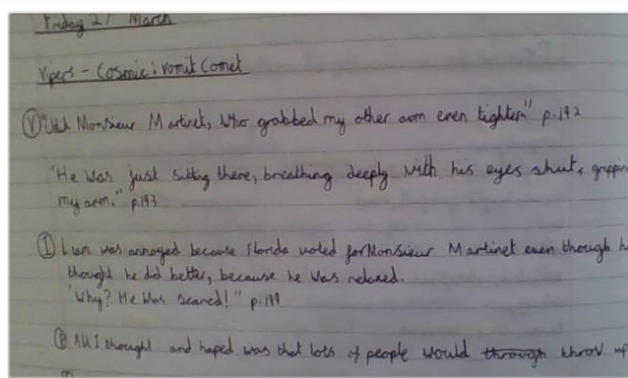 Friday 27 March
Vipers - Cosmic: Vomit Comet
Ⓥ "Uhh Monsieur Martinet, who grabbed my other arm even tighter." p.192
"He was just sitting there, breathing deeply with his eyes shut, gripping
my arm." p.193
Ⓘ Liam was annoyed because Florida voted for Monsieur Martinet even though he
thought he did better, because he was relaxed.
"Why? He was scared!" p.199
Ⓟ All I thought and hoped was that lots of people would through throw up